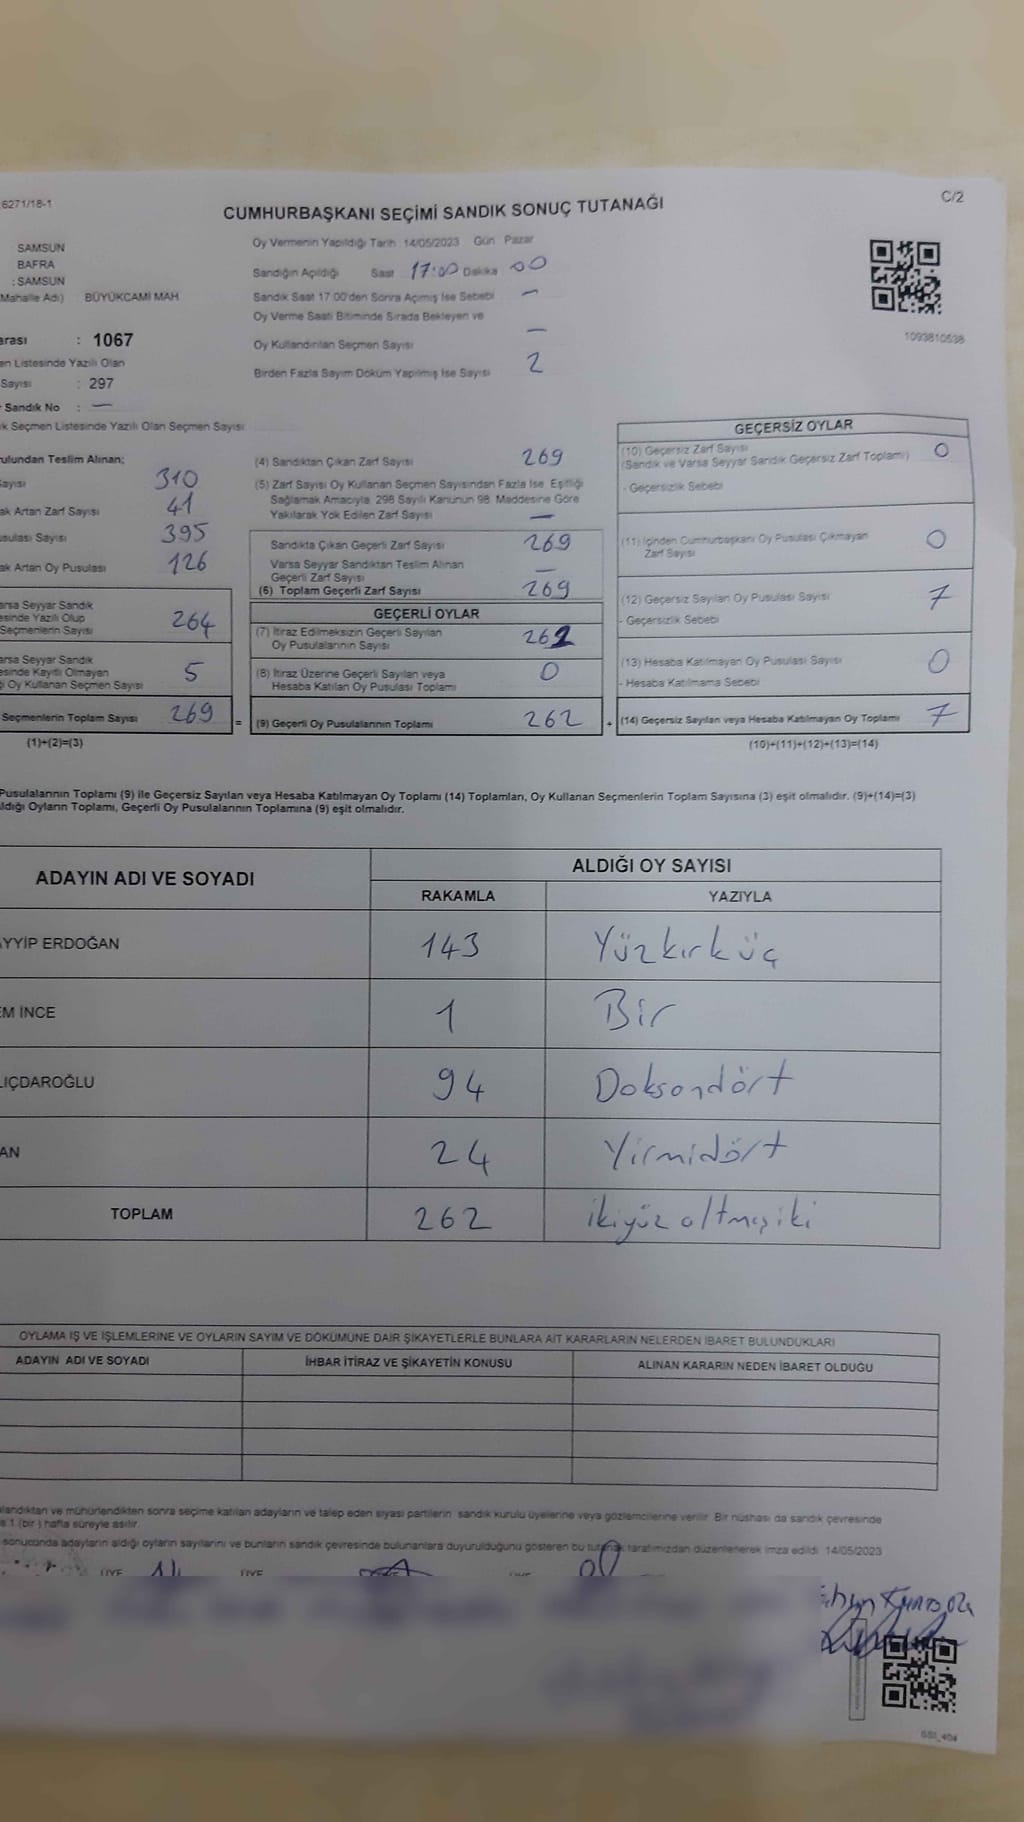 6271/18-1
C/2
CUMHURBAŞKANI SEÇİMİ SANDIK SONUÇ TUTANAĞI
SAMSUN
BAFRA
: SAMSUN
Mahalle Adı) BÜYÜKCAMİ MAH
Oy Vermenin Yapıldığı Tarih 14/05/2023 Gün Pazar
Sandığın Açıldığı Saat 17:00 Dakika 00
Sandık Saat 17:00'den Sonra Açımış İse Sebebi —
Oy Verme Saati Bitiminde Sırada Bekleyen ve
Oy Kullandırılan Seçmen Sayısı —
Birden Fazla Sayım Döküm Yapılmış İse Sayısı 2
1093810538
arası : 1067
en Listesinde Yazılı Olan
Sayısı : 297
r Sandık No : —
k Seçmen Listesinde Yazılı Olan Seçmen Sayısı
rulundan Teslim Alınan;
ayısı 310
ak Artan Zarf Sayısı 41
usulası Sayısı 395
ak Artan Oy Pusulası 126
arsa Seyyar Sandık
esinde Yazılı Olup
Seçmenlerin Sayısı 264
arsa Seyyar Sandık
esinde Kayıtlı Olmayan
i Oy Kullanan Seçmen Sayısı 5
Seçmenlerin Toplam Sayısı 269 =
(1)+(2)=(3)
(4) Sandıktan Çıkan Zarf Sayısı 269
(5) Zarf Sayısı Oy Kullanan Seçmen Sayısından Fazla İse, Eşitliği
Sağlamak Amacıyla, 298 Sayılı Kanunun 98. Maddesine Göre
Yakılarak Yok Edilen Zarf Sayısı —
Sandıkta Çıkan Geçerli Zarf Sayısı 269
Varsa Seyyar Sandıktan Teslim Alınan
Geçerli Zarf Sayısı —
(6) Toplam Geçerli Zarf Sayısı 269
GEÇERLİ OYLAR
(7) İtiraz Edilmeksizin Geçerli Sayılan
Oy Pusulalarının Sayısı 262
(8) İtiraz Üzerine Geçerli Sayılan veya
Hesaba Katılan Oy Pusulası Toplamı 0
(9) Geçerli Oy Pusulalarının Toplamı 262 +
GEÇERSİZ OYLAR
(10) Geçersiz Zarf Sayısı
(Sandık ve Varsa Seyyar Sandık Geçersiz Zarf Toplamı) 0
- Geçersizlik Sebebi
(11) İçinden Cumhurbaşkanı Oy Pusulası Çıkmayan
Zarf Sayısı 0
(12) Geçersiz Sayılan Oy Pusulası Sayısı 7
- Geçersizlik Sebebi
(13) Hesaba Katılmayan Oy Pusulası Sayısı 0
- Hesaba Katılmama Sebebi
(14) Geçersiz Sayılan veya Hesaba Katılmayan Oy Toplamı 7
(10)+(11)+(12)+(13)=(14)
Pusulalarının Toplamı (9) ile Geçersiz Sayılan veya Hesaba Katılmayan Oy Toplamı (14) Toplamları, Oy Kullanan Seçmenlerin Toplam Sayısına (3) eşit olmalıdır. (9)+(14)=(3)
ldığı Oyların Toplamı, Geçerli Oy Pusulalarının Toplamına (9) eşit olmalıdır.
ADAYIN ADI VE SOYADI ALDIĞI OY SAYISI
RAKAMLA YAZIYLA
AYYİP ERDOĞAN 143 Yüzkırküç
EM İNCE 1 Bir
LIÇDAROĞLU 94 Doksandört
AN 24 Yirmidört
TOPLAM 262 ikiyüz altmışiki
OYLAMA İŞ VE İŞLEMLERİNE VE OYLARIN SAYIM VE DÖKÜMÜNE DAİR ŞİKAYETLERLE BUNLARA AİT KARARLARIN NELERDEN İBARET BULUNDUKLARI
ADAYIN ADI VE SOYADI İHBAR İTİRAZ VE ŞİKAYETİN KONUSU ALINAN KARARIN NEDEN İBARET OLDUĞU
landıktan ve mühürlendikten sonra seçime katılan adayların ve talep eden siyasi partilerin sandık kurulu üyelerine veya gözlemcilerine verilir. Bir nüshası da sandık çevresinde
1 (bir) hafta süreyle asılır.
sonucunda adayların aldığı oyların sayılarını ve bunların sandık çevresinde bulunanlara duyurulduğunu gösteren bu tutanak tarafımızdan düzenlenerek imza edildi. 14/05/2023
ÜYE ÜYE ÜYE